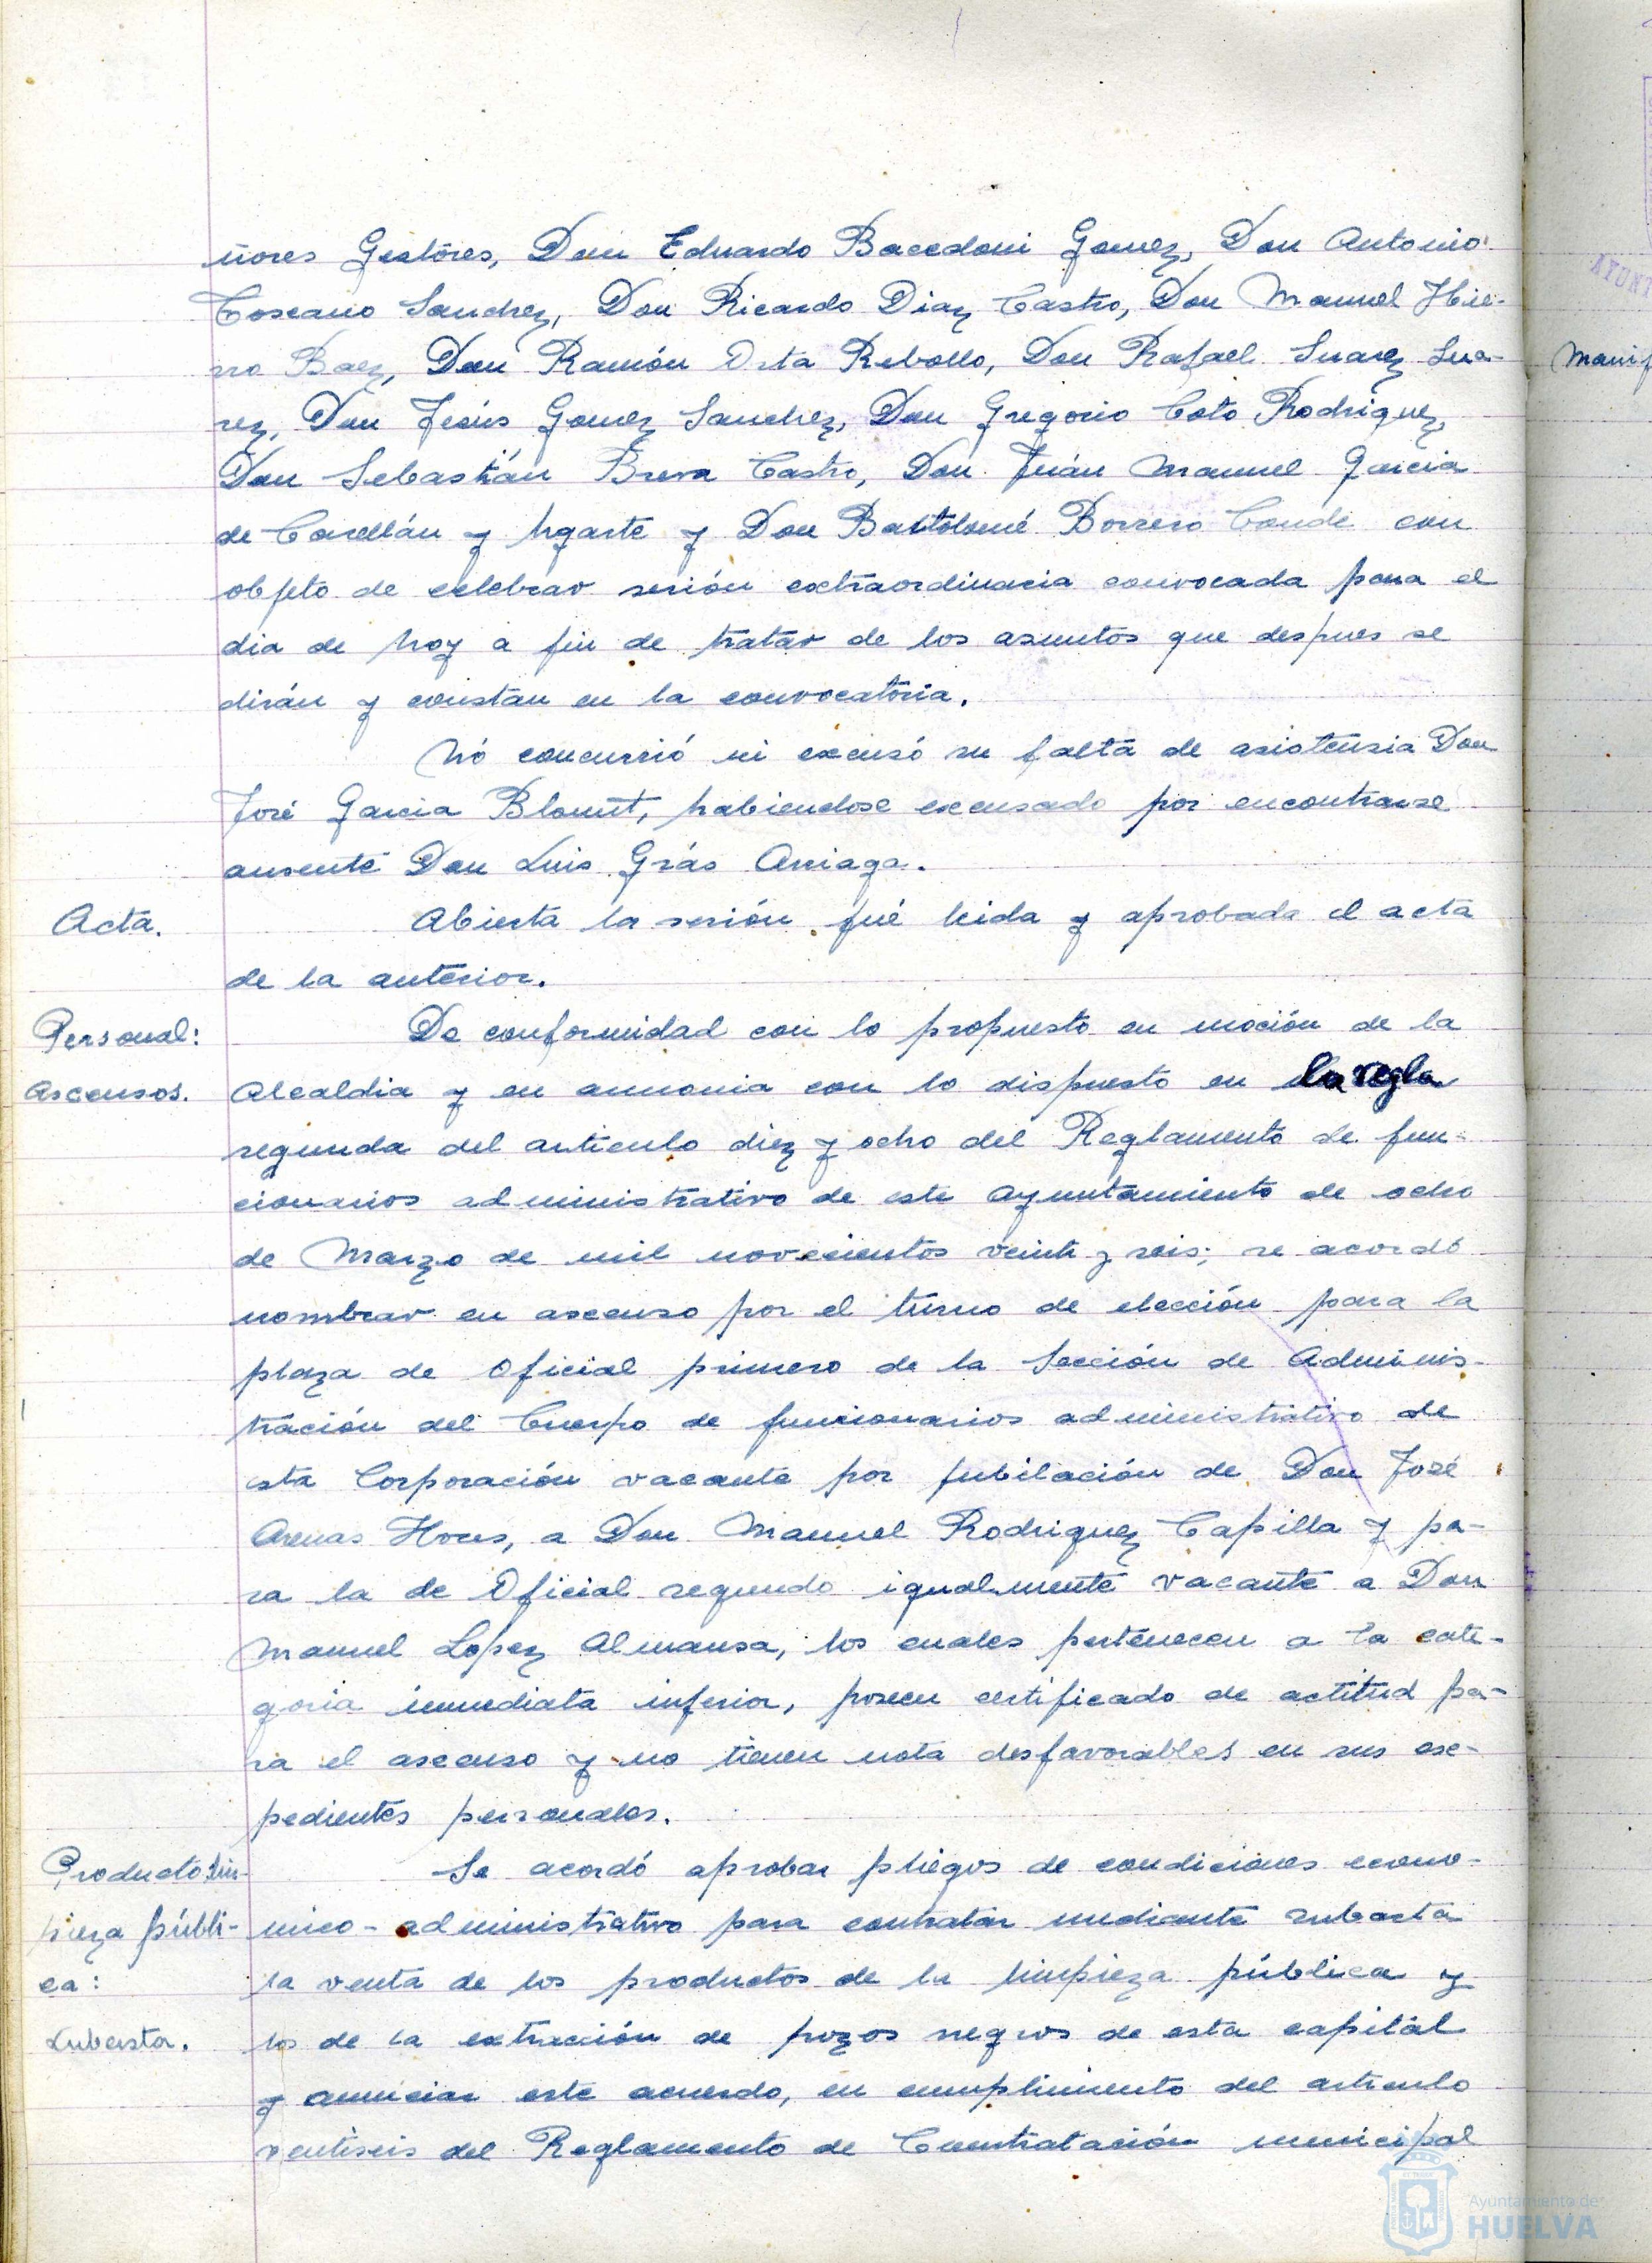 ñores Gestores, Don Eduardo Bacedoni Gomez, Don Antonio
Toscano Sanchez, Don Ricardo Diaz Castro, Don Manuel Hie-
rro Baez, Don Ramón Orta Rebollo, Don Rafael Suarez Sua-
rez, Don Jesús Gomez Sanchez, Don Gregorio Coto Rodriguez,
Don Sebastián Breva Castro, Don Juán Manuel Garcia
de Casellán y Ugarte y Don Bartolomé Borrero Conde con
objeto de celebrar sesión extraordinaria convocada para el
dia de hoy a fin de tratar de los asuntos que despues se
dirán y constan en la convocatoria.
No concurrió ni excusó su falta de asistensia Don
José Garcia Blount, habiendose excusado por encontrarse
ausente Don Luis Grás Arriaga.
Acta.
Abierta la sesión fué leida y aprobada el acta
de la anterior.
Personal:
Ascensos.
De conformidad con lo propuesto en moción de la
Alcaldia y en armonia con lo dispuesto en la regla
segunda del articulo diez y ocho del Reglamento de fun-
cionarios administrativo de este Ayuntamiento de ocho
de Marzo de mil novecientos veinte y seis; se acordó
nombrar en ascenso por el turno de elección para la
plaza de Oficial primero de la Sección de Adminis-
tración del Cuerpo de funcionarios administrativo de
esta Corporación vacante por jubilación de Don José
Arenas Hores, a Don Manuel Rodriguez Capilla y pa-
ra la de Oficial segundo igualmente vacante a Don
Manuel Lopez Almansa, los cuales pertenecen a la cate-
goria inmediata inferior, poseen certificado de actitud pa-
ra el ascenso y no tienen nota desfavorables en sus ex-
pedientes personales.
Producto lim-
pieza públi-
ca:
Subasta.
Se acordó aprobar pliegos de condiciones econo-
mico-administrativo para contratar mediante subasta
la venta de los productos de la limpieza pública y
los de la extracción de pozos negros de esta capital
y anunciar este acuerdo, en cumplimiento del articulo
ventiseis del Reglamento de Contratación municipal
Manif
AYUNT
Ayuntamiento de
HUELVA